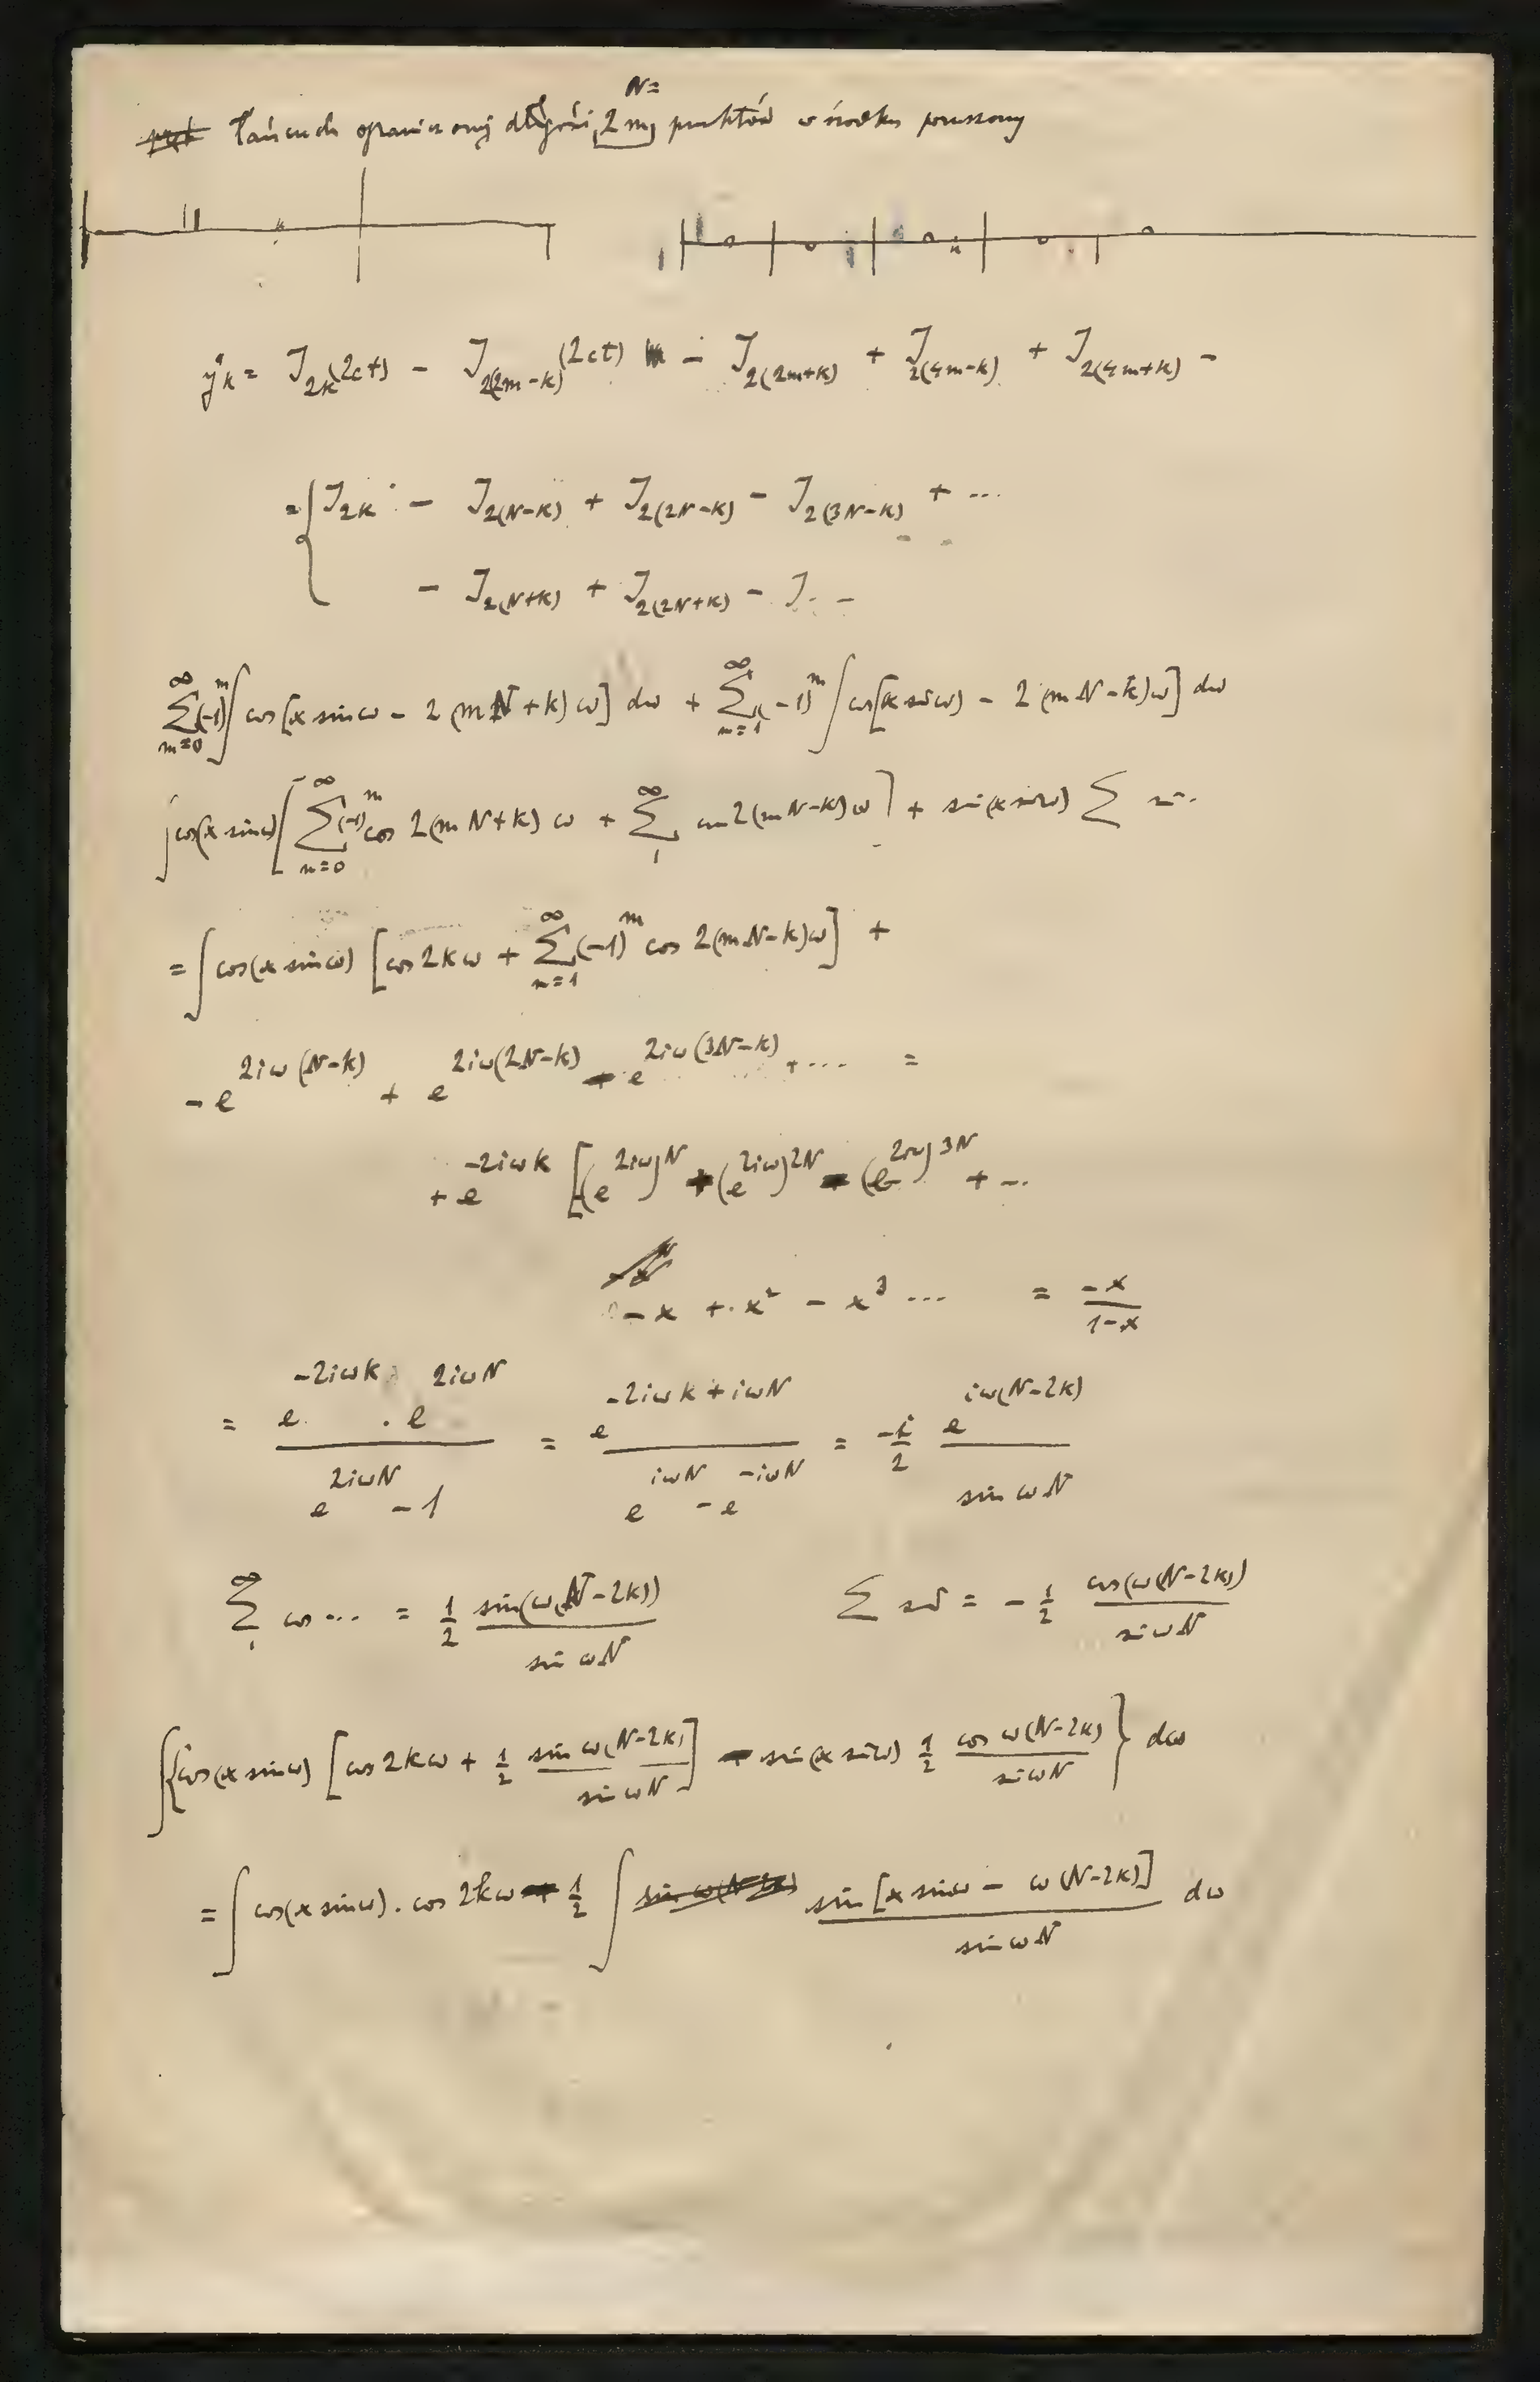 N=
Łańcuch ograniczony długości 2m punktów w środku poruszony
y°k = J2k(2ct) − J2(2m−k)(2ct) − J2(2m+k) + J2(4m−k) + J2(4m+k) −
= { J2k − J2(N−k) + J2(2N−k) − J2(3N−k) + ...
− J2(N+k) + J2(2N+k) − J. −
∞ Σ m=0 (−1)^m ∫ cos[x sin ω − 2(mN+k)ω] dω + ∞ Σ m=1 (−1)^m ∫ cos[x sin ω) − 2(mN−k)ω] dω
∫ cos(x sin ω) [ ∞ Σ m=0 (−1)^m cos 2(mN+k) ω + ∞ Σ 1 cos 2(mN−k)ω ] + sin(x sin ω) Σ sin..
= ∫ cos(x sin ω) [cos 2kω + ∞ Σ m=1 (−1)^m cos 2(mN−k)ω] +
− e^{2iω(N−k)} + e^{2iω(2N−k)} − e^{2iω(3N−k)} + .... =
+ e^{−2iωk} [(e^{2iω})^N + (e^{2iω})^{2N} − (e^{2iω})^{3N} + ...
− x + x² − x³ ... = −x / 1−x
= e^{−2iωk} . e^{2iωN} / e^{2iωN} − 1 = e^{−2iωk+iωN} / e^{iωN} − e^{−iωN} = −i/2 e^{iω(N−2k)} / sin ωN
∞ Σ 1 cos ... = 1/2 sin(ω(N−2k)) / sin ωN Σ sin = − 1/2 cos(ω(N−2k)) / sin ωN
∫{cos(x sin ω) [cos 2kω + 1/2 sin ω(N−2k) / sin ωN] − sin(x sin ω) 1/2 cos ω(N−2k) / sin ωN} dω
= ∫ cos(x sin ω) . cos 2kω − 1/2 ∫ sin ω(N−2k) sin[x sin ω − ω(N−2k)] / sin ωN dω